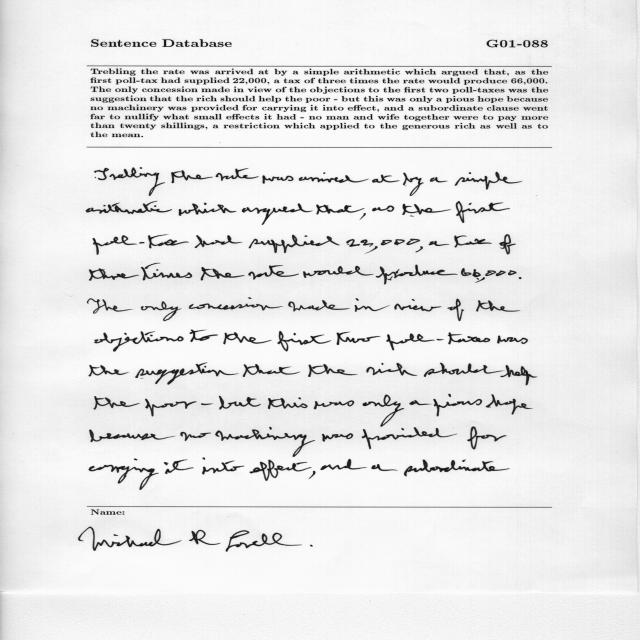 Sentence Database G01-088
Trebling the rate was arrived at by a simple arithmetic which argued that, as the
first poll-tax had supplied 22,000, a tax of three times the rate would produce 66,000.
The only concession made in view of the objections to the first two poll-taxes was the
suggestion that the rich should help the poor - but this was only a pious hope because
no machinery was provided for carrying it into effect, and a subordinate clause went
far to nullify what small effects it had - no man and wife together were to pay more
than twenty shillings, a restriction which applied to the generous rich as well as to
the mean.
Trebling the rate was arrived at by a simple
arithmetic which argued that, as the first
poll-tax had supplied 22,000, a tax of
three times the rate would produce 66,000.
The only concession made in view of the
objections to the first two poll-taxes was
the suggestion that the rich should help
the poor - but this was only a pious hope
because no machinery was provided for
carrying it into effect, and a subordinate
Name:
Michael R Lovell.